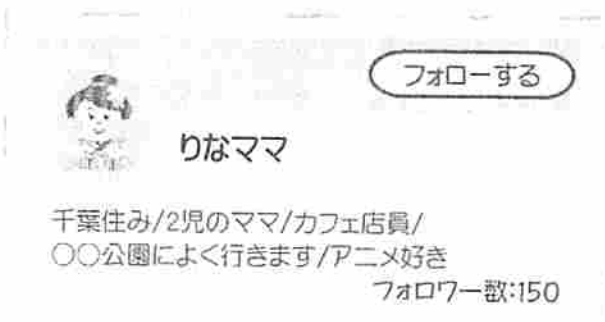 フォローする
りなママ
千葉住み/2児のママ/カフェ店員/
〇〇公園によく行きます/アニメ好き
フォロワー数:150